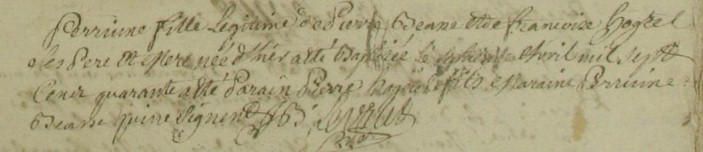 Perrinne fille Legitime de Pierre Beane et de francoise hoguel
ses Pere et Mere née d'hier a eté Baptisée le Avril mil sept
Cent quarante a eté Parain Pierre fils Maraine Perrine
Beane qui ne Signent